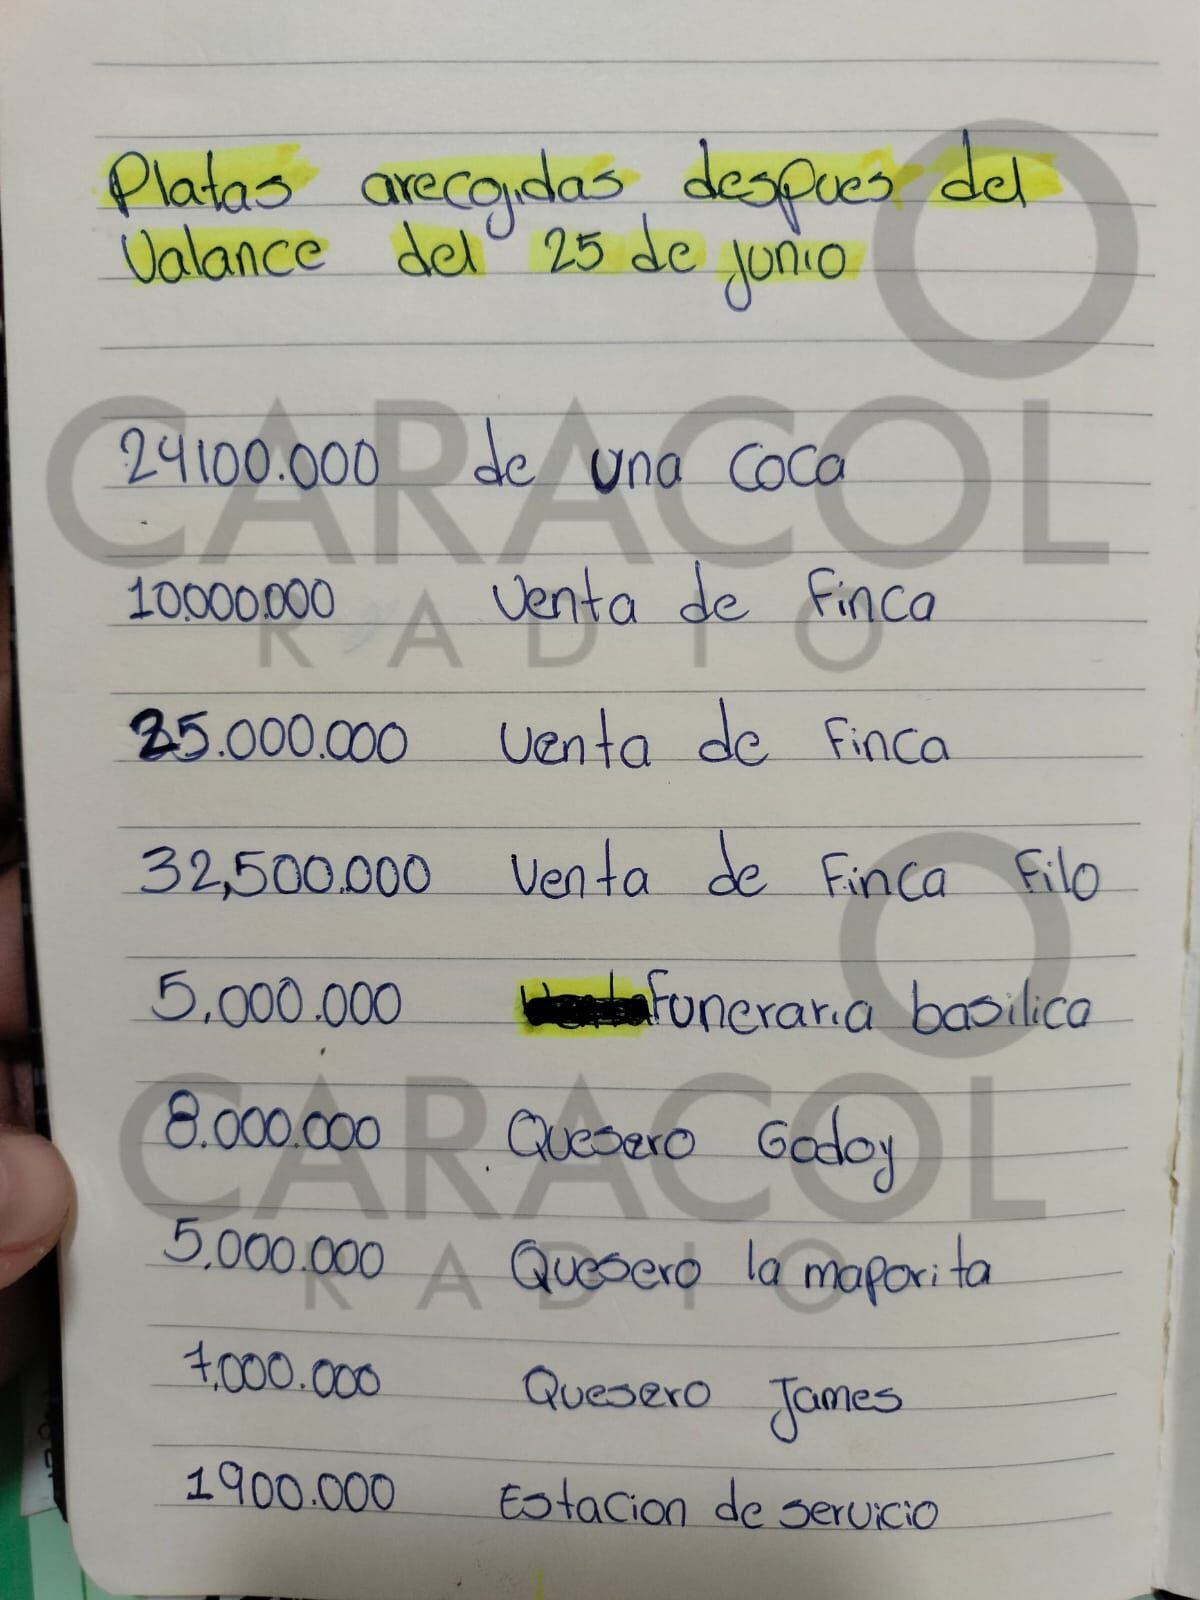 Platas arecogidas despues del
Valance del 25 de junio
24100.000 de una coca
10.000.000 Venta de Finca
25.000.000 Venta de Finca
32,500.000 Venta de Finca Filo
5.000.000 Funeraria basilica
8.000.000 Quesero Godoy
5.000.000 Quesero la maporita
7,000.000 Quesero James
1900.000 Estacion de servicio
CARACOL
RADIO
CARACOL
RADIO